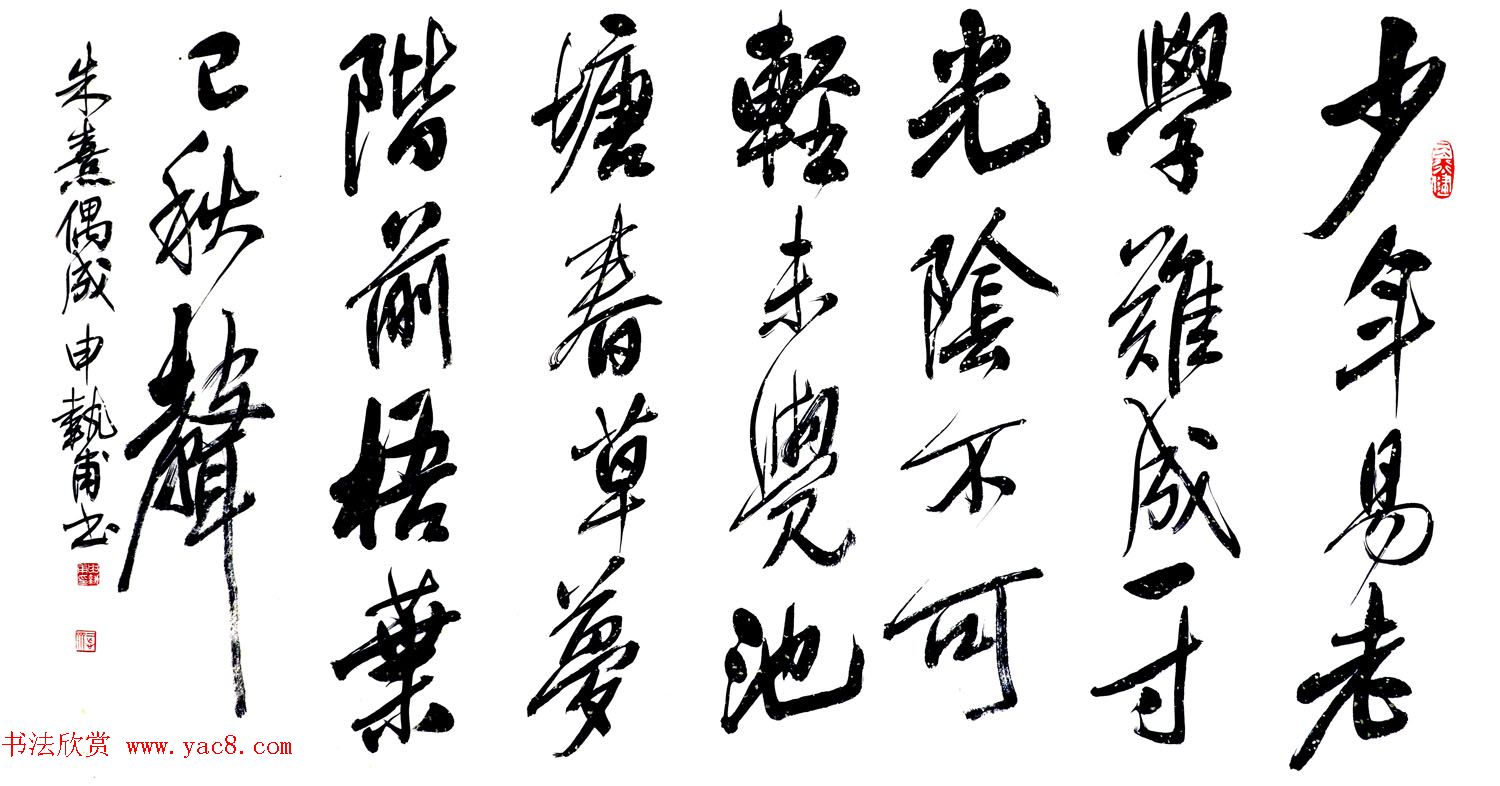 少年易老
學難成一寸
光陰不可
輕未覺池
塘春草夢
階前梧葉
已秋聲
朱熹偶成 申執甫书
书法欣赏 www.yac8.com